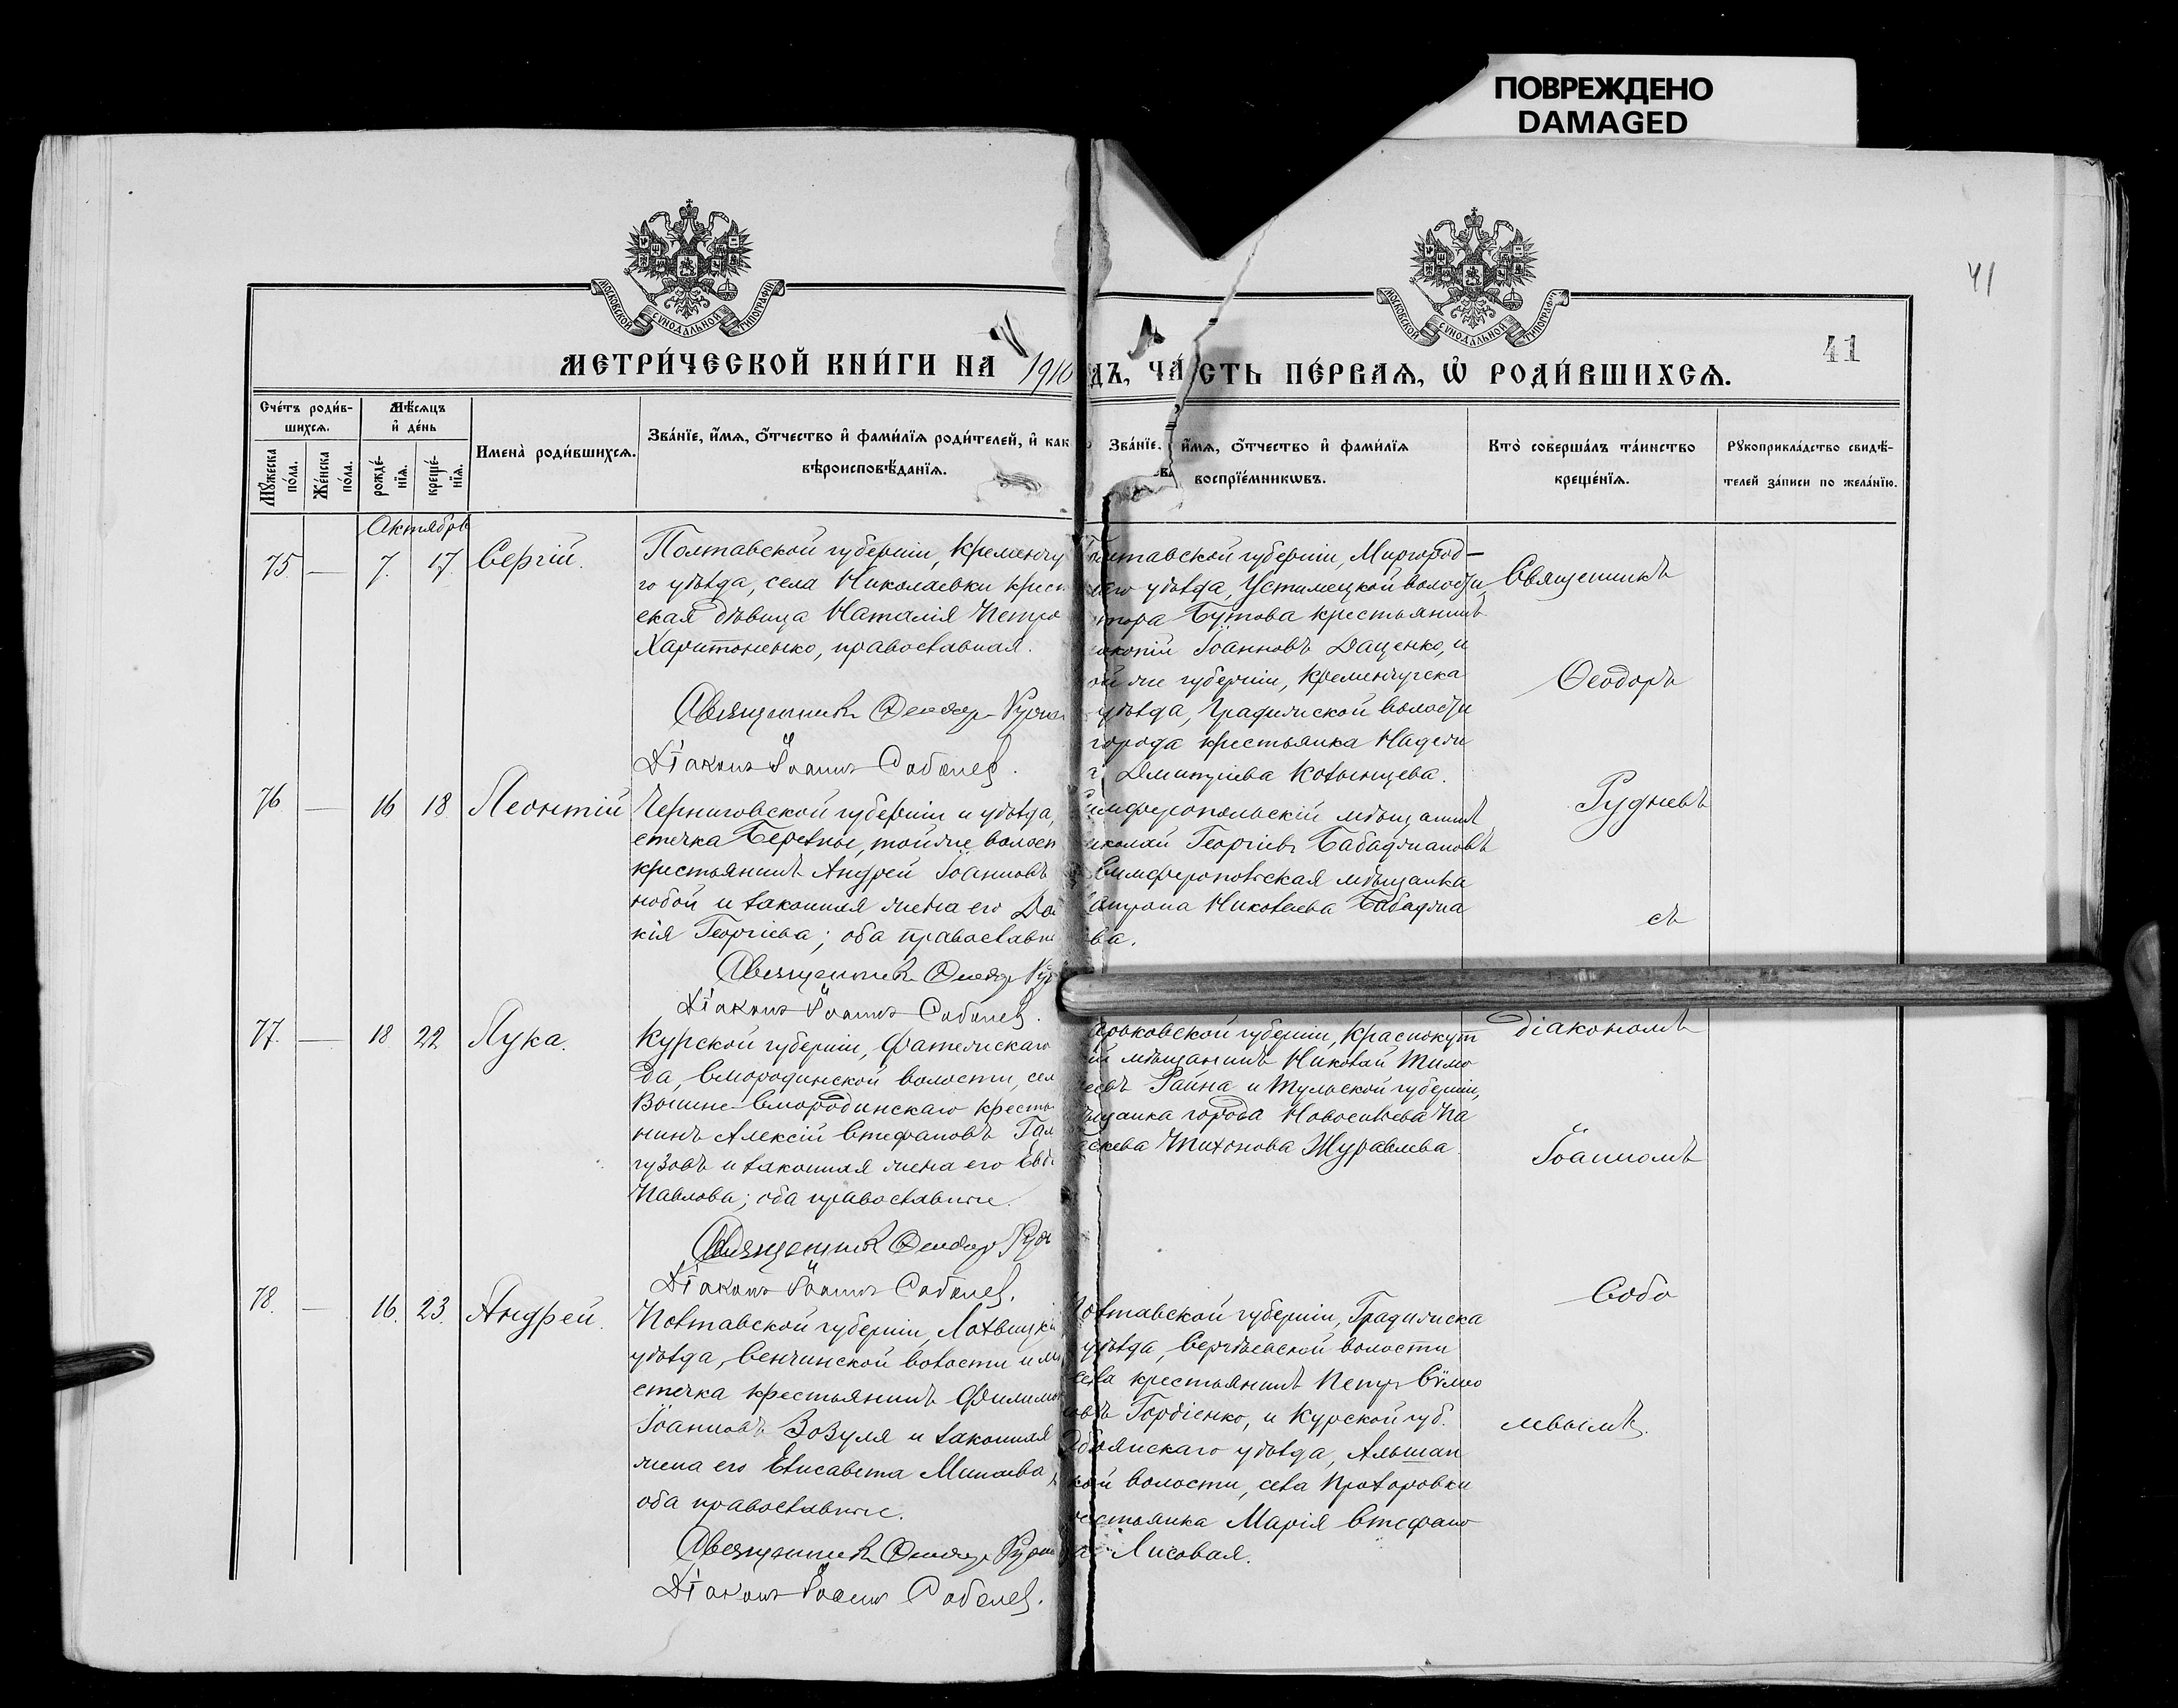 ПОВРЕЖДЕНО
DAMAGED
41
МОСКОВСКОЙ СУНОДАЛЬНОЙ ТИПОГРАФІИ
МОСКОВСКОЙ СУНОДАЛЬНОЙ ТИПОГРАФІИ
41
МЕТРИ́ЧЕСКОЙ КНИ́ГИ НА 1910
ДЪ, ЧА́СТЬ ПЕ́РВАѦ, Ѡ҆ РОДИ́ВШИХСѦ.
Сче́тъ роди́в-
шихсѧ.
Мѣ́сѧцъ
и҆ де́нь
Мꙋ́жеска по́ла.
Же́нска по́ла.
рожде́-нїѧ.
креще́-нїѧ.
Имена̀ роди́вшихсѧ.
Зва́нїе, и҆́мѧ, ѻ҆́тчество и҆ фами́лїѧ роди́телей, и҆ как
вѣроисповѣ́данїѧ.
Зва́нїе, и҆́мѧ, ѻ҆́тчество и҆ фами́лїѧ
воспрїе́мникѡвъ.
Кто̀ соверша́лъ та́инство
креще́нїѧ.
Рꙋкоприкла́дство свидѣ́-
телей за́писи по жела́нїю.
Октябрь
75 — 7. 17 Сергій.
Полтавской губерніи, Кременчу
го уѣзда, села Николаевки крест
ская дѣвица Наталія Петро
Харитоненко, православная.
Священникъ Ѳеодоръ Рудн
Діаконъ Іоаннъ Соболев.
олтавской губерніи, Миргород-
аго уѣзда, Устимецкой волости,
тора Бутова крестьянинъ
окопій Іоанновъ Даценко, и
ой же губерніи, Кременчугска
уѣзда, Градижской волости
города крестьянка Надежд
Димитріева Котынцева.
Священникъ
Ѳеодоръ
Рудневъ
съ
діакономъ
Іоанномъ
Собо
левымъ.
76 — 16 18 Леонтій
Черниговской губерніи и уѣзда,
стечка Березны, той же волост
крестьянинъ Андрей Іоанновъ
нобой и законная жена его До
кія Георгіева; оба православн
Священникъ Ѳеодоръ Руд
Діаконъ Іоаннъ Соболев.
имферопольскій мѣщанинъ
иколай Георгіевъ Бабаджановъ
Симферопольская мѣщанка
атрона Николаева Бабаджа
ова.
77. — 18 22 Лука.
Курской губерніи, Фатежскаго
да, Смородинской волости, сел
Выше-Смородинскаго кресть
нинъ Алексій Стефановъ Гал
гузовъ и законная жена его Евд
Павлова; оба православные.
Священникъ Ѳеодоръ Рудн
Діаконъ Іоаннъ Соболев.
арьковской губерніи, Краснокут
ій мѣщанинъ Николай Тимо
еевъ Райна и Тульской губерніи,
ѣщанка города Новосильева Па
аскева Тихонова Журавлева.
78. — 16. 23. Андрей.
Полтавской губерніи, Лохвицк
уѣзда, Сенчинской волости и мѣ
стечка крестьянинъ Филимон
Іоанновъ Зозуля и законная
жена его Елисавета Минаева,
оба православные.
Священникъ Ѳеодоръ Рудн
Діаконъ Іоаннъ Соболев.
олтавской губерніи, Градижска
уѣзда, Сергѣевской волости
села крестьянинъ Петръ Сумео
овъ Гордіенко, и Курской губ.
Обоянскаго уѣзда, Альшан
кой волости, села Прохоровки
рестьянка Марія Стефано
а Лисовая.